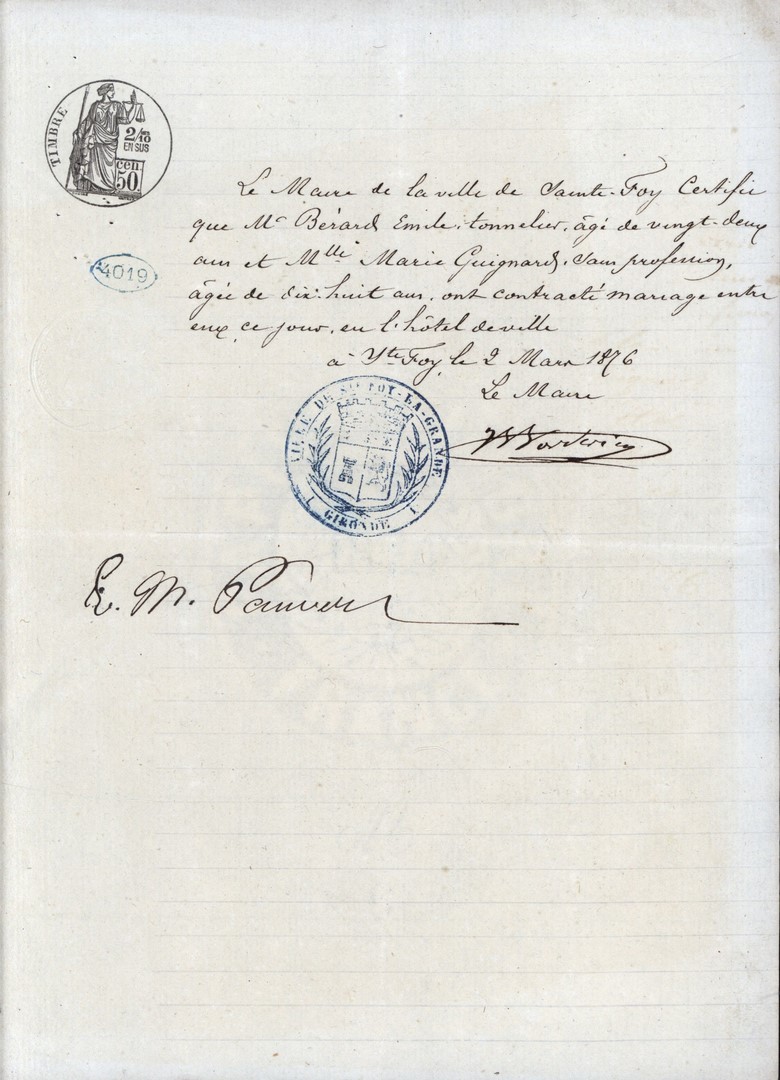 TIMBRE
2/10
EN SUS
cen
50
4019
Le Maire de la ville de Sainte-Foy Certifie
que Mr Bérard Emile, tonnelier, âgé de vingt-deux
ans et Mlle Marie Guignard, sans profession,
âgée de dix-huit ans, ont contracté mariage entre
eux, ce jour, en l'hôtel de ville
à Ste Foy, le 2 Mars 1876
Le Maire
VILLE DE STE FOY-LA-GRANDE
GIRONDE
E. M. Pauvert